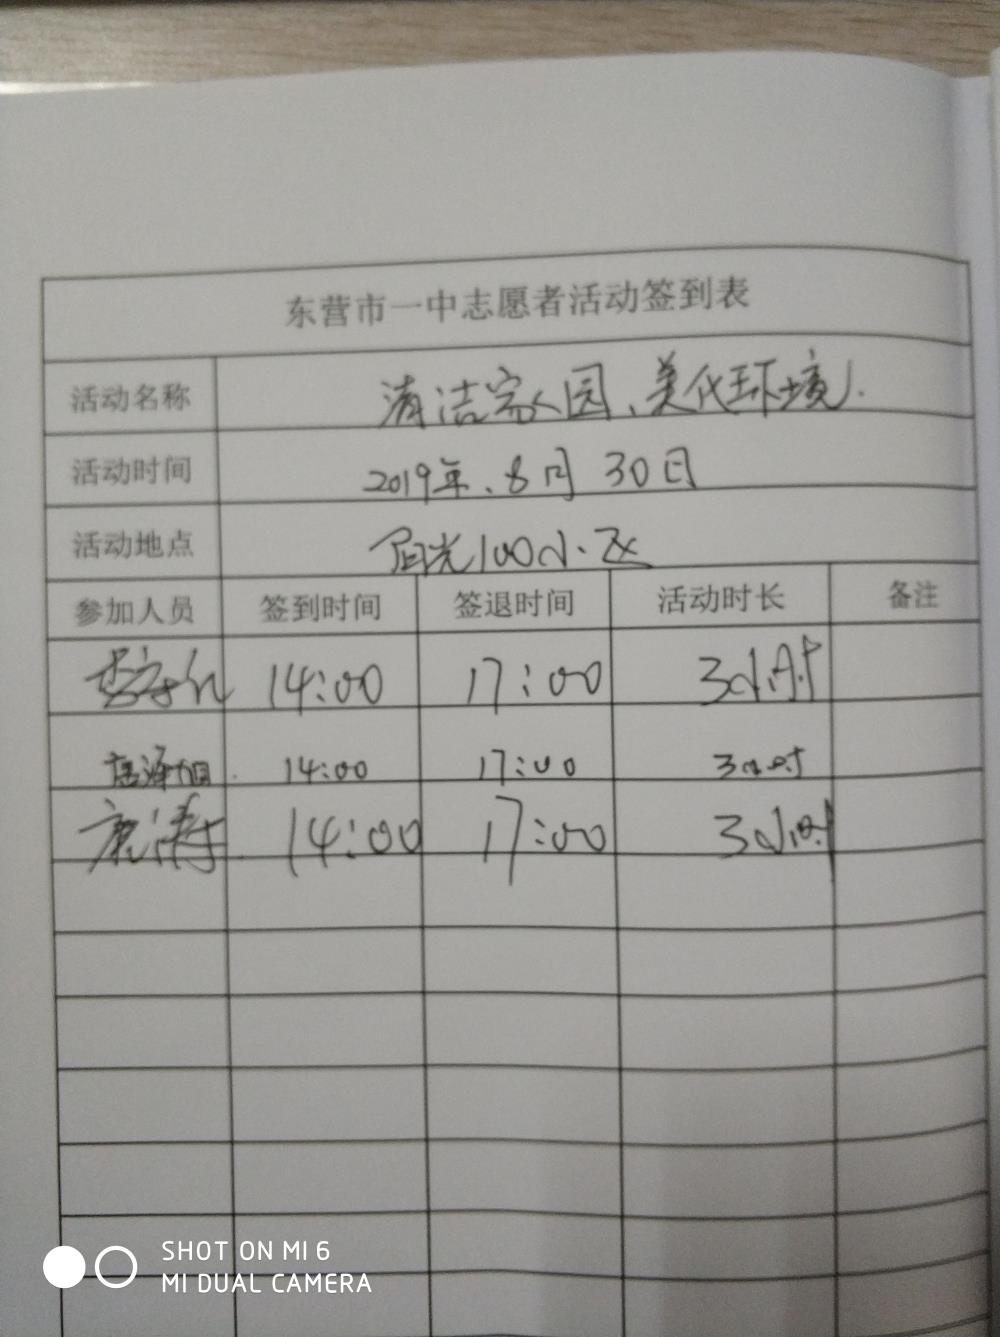 东营市一中志愿者活动签到表
活动名称 清洁家园、美化环境.
活动时间 2019年.8月30日
活动地点 阳光100小区
参加人员 签到时间 签退时间 活动时长 备注
14:00 17:00 3小时
14:00 17:00 3小时
康涛 14:00 17:00 3小时
SHOT ON MI 6
MI DUAL CAMERA